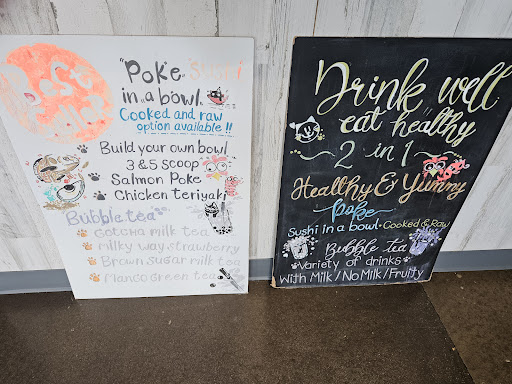 "Poke" Sushi
in a bowl
Cooked and raw
option available !!
Build your own bowl
3 & 5 scoop
Salmon Poke
Chicken teriyaki
Bubble tea
Gotcha milk tea
milky way strawberry
Brown sugar milk tea
Mango green tea
Drink well
eat "healthy"
2 in 1
Healthy & Yummy
poke
Sushi in a bowl • Cooked & Raw
Bubble tea
Variety of drinks
With Milk / No Milk / Fruity